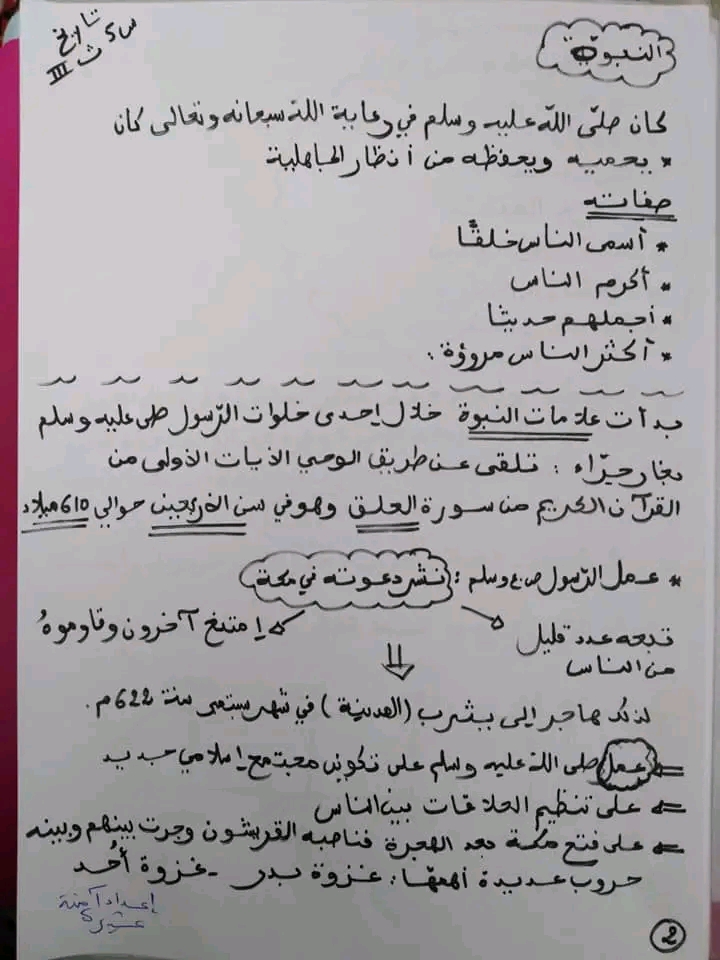 تاريخ
س 5 ث
III
النبوة
كان صلّى اللّه عليه وسلم في رعاية اللّه سبحانه وتعالى كان
* يحميه ويحفظه من أنظار الجاهلية
صفاته
* أسمى الناس خلقًا
* أكرم الناس
* أجملهم حديثا
* أكثر الناس مروؤة:
بدأت علامات النبوة خلال إحدى خلوات الرّسول صلى عليه وسلم
بغار حرّاء : تلقى عن طريق الوحي الآيات الأولى من
القرآن الكريم من سورة العلق وهو في سن الأربعين حوالي 610 ميلاد
* عمل الرّسول ص.ع وسلم : نشر دعوته في مكة
تبعه عدد قليل من الناس
إمتنع آخرون وقاوموهُ
لذلك هاجر إلى يثرب (المدينة) في شهر سبتمبر سنة 622م.
عمل صلى اللّه عليه وسلم على تكوين مجتمع إسلامي جديد
على تنظيم العلاقات بين الناس
على فتح مكة بعد الهجرة فناصبه القريشون وجرت بينهم وبينه
حروب عديدة أهمّها: غزوة بدر - غزوة أُحُد
إعداد آمنة
2